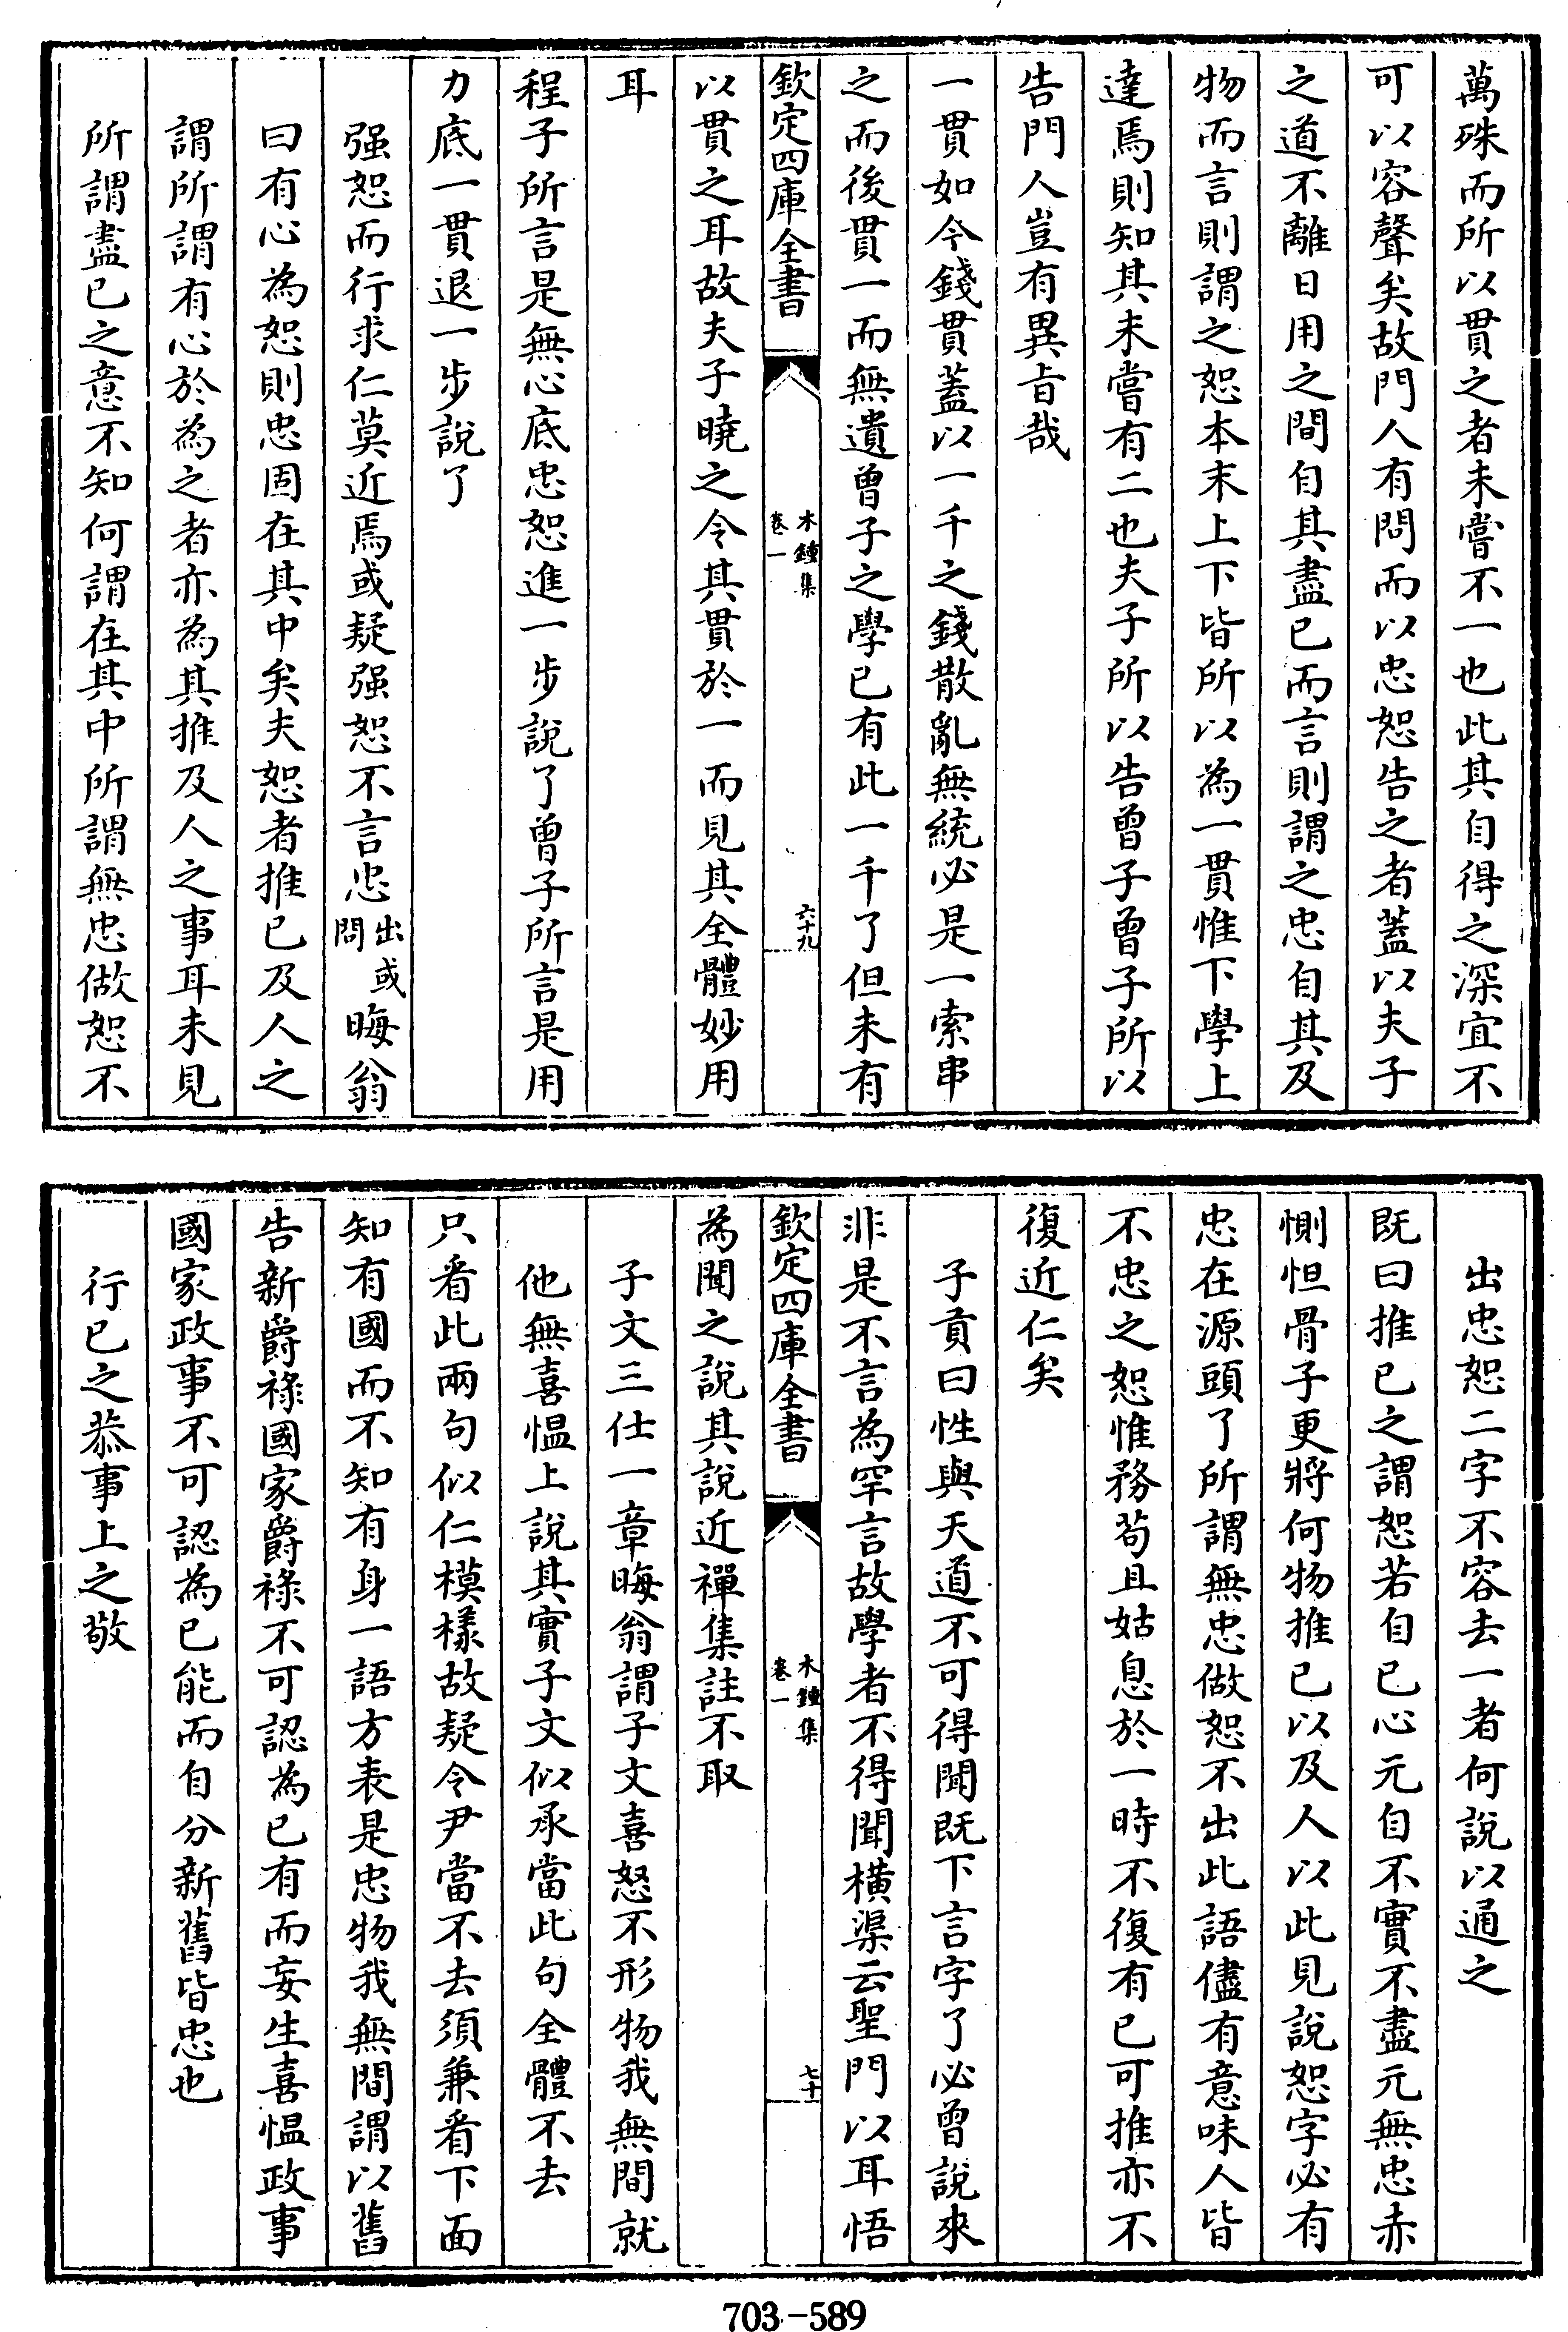 萬殊而所以貫之者未嘗不一也此其自得之深宜不
可以容聲矣故門人有問而以忠恕告之者蓋以夫子
之道不離日用之間自其盡已而言則謂之忠自其及
物而言則謂之恕本末上下皆所以為一貫惟下學上
達焉則知其未嘗有二也夫子所以告曾子曾子所以
告門人豈有異旨哉
一貫如今錢貫蓋以一千之錢散亂無統必是一索串
之而後貫一而無遺曾子之學已有此一千了但未有
欽定四庫全書
木鍾集
卷一
六十九
以貫之耳故夫子曉之令其貫於一而見其全體妙用
耳
程子所言是無心底忠恕進一步說了曾子所言是用
力底一貫退一步說了
强恕而行求仁莫近焉或疑强恕不言忠出或問晦翁
曰有心為恕則忠固在其中矣夫恕者推已及人之
謂所謂有心於為之者亦為其推及人之事耳未見
所謂盡已之意不知何謂在其中所謂無忠做恕不
出忠恕二字不容去一者何說以通之
既曰推已之謂恕若自已心元自不實不盡元無忠赤
惻怛骨子更將何物推已以及人以此見說恕字必有
忠在源頭了所謂無忠做恕不出此語儘有意味人皆
不忠之恕惟務茍且姑息於一時不復有已可推亦不
復近仁矣
子貢曰性與天道不可得聞既下言字了必曾說來
非是不言為罕言故學者不得聞橫渠云聖門以耳悟
欽定四庫全書
木鍾集
卷一
七十
為聞之說其說近禪集註不取
子文三仕一章晦翁謂子文喜怒不形物我無間就
他無喜愠上說其實子文似承當此句全體不去
只看此兩句似仁模樣故疑令尹當不去須兼看下面
知有國而不知有身一語方表是忠物我無間謂以舊
告新爵祿國家爵祿不可認為已有而妄生喜愠政事
國家政事不可認為已能而自分新舊皆忠也
行已之恭事上之敬
703-589